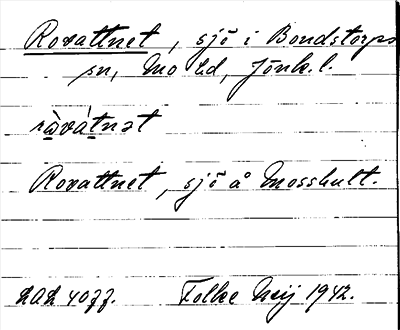 Rovattnet, sjö i Bondstorps
sn, Mo hd, Jönk. l.
ròvátnət
Rovattnet, sjö å Mosshult.
Folke Meij 1942.